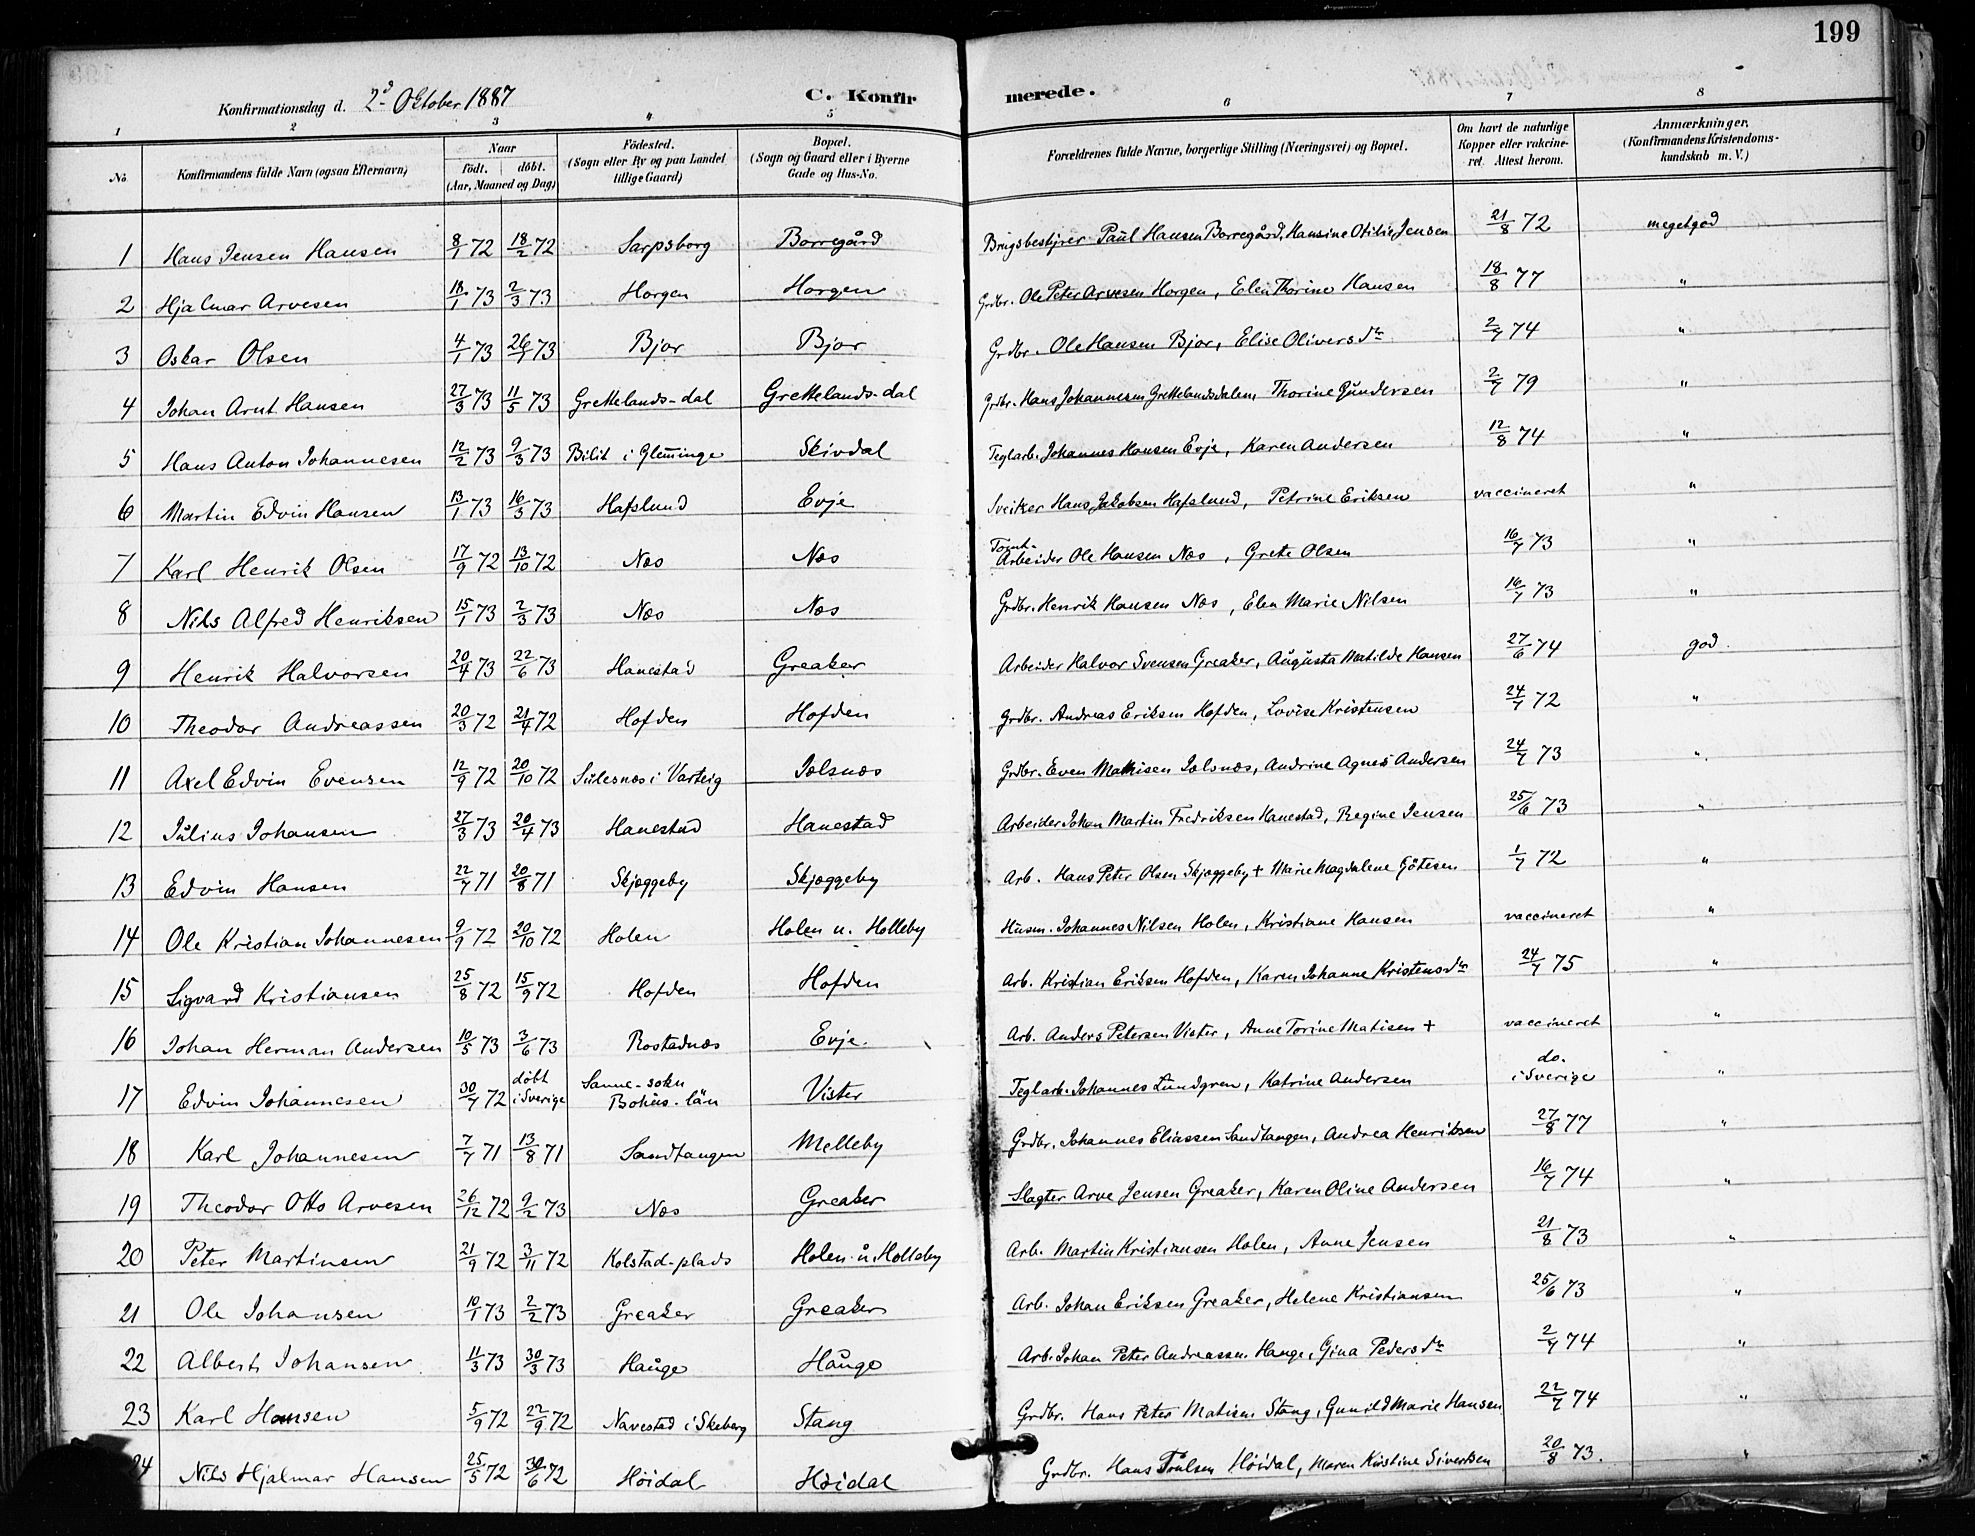 199
Konfirmationsdag d. 2d Oktober 1887 C. Konfirmerede.
1 2 3 4 5 6 7 8
No. Konfirmandens fulde Navn (ogsaa Efternavn) Naar födt. döbt. (Aar, Maaned og Dag) Födested. (Sogn eller By og paa Landet tillige Gaard) Bopæl. (Sogn og Gaard eller i Byerne Gade og Hus-No. Forældrenes fulde Navne, borgerlige Stilling (Næringsvei) og Bopæl. Om havt de naturlige Kopper eller vaccineret. Attest herom. Anmærkninger. (Konfirmandens Kristendomskundskab m. V.)
1 Hans Jensen Hansen 8/1 72 18/2 72 Sarpsborg Borregård Brugsbestyrer Paul Hansen Borregård, Hansine Otilie Jensen 21/8 72 megetgod
2 Hjalmar Arvesen 18/1 73 2/3 73 Horgen Horgen Grdbr. Ole Peter Arvesen Horgen, Elen Thorine Hansen 18/8 77 "
3 Oskar Olsen 4/1 73 26/1 73 Bjor Bjor Grdbr. Ole Hansen Bjor, Elise Oliversdtr 2/7 74 "
4 Johan Arnt Hansen 27/3 73 11/5 73 Grettelands-dal Grettelands-dal Grdbr. Hans Johannesen Grettelandsdalen, Thorine Gundersen 2/7 79 "
5 Hans Anton Johannesen 12/2 73 9/3 73 Bilit i Glemminge Skivdal Teglarb. Johannes Hansen Evje, Karen Andersen 12/8 74 "
6 Martin Edvin Hansen 13/1 73 16/3 73 Hafslund Evje Sveiker Hans Jakobsen Hafslund, Petrine Eriksen vaccineret "
7 Karl Henrik Olsen 17/9 72 13/10 72 Næs Næs Tomt-Arbeider Ole Hansen Næs, Grete Olsen 16/7 73 "
8 Nils Alfred Henriksen 15/1 73 2/3 73 Næs Næs Grdbr. Henrik Hansen Næs, Elen Marie Nilsen 16/7 73 "
9 Henrik Halvorsen 20/4 73 22/6 73 Hanestad Greaker Arbeider Halvor Svensen Greaker, Augusta Matilde Hansen 27/6 74 god.
10 Theodor Andreassen 20/3 72 21/4 72 Hofden Hofden Grdbr. Andreas Eriksen Hofden, Lovise Kristensen 24/7 72 "
11 Axel Edvin Evensen 12/9 72 20/10 72 Sulesnæs i Varteig Jolsnæs Grdbr. Even Mathisen Jolsnæs, Andrine Agnes Andersen 24/7 73 "
12 Julius Johansen 27/3 73 20/4 73 Hanestad Hanestad Arbeider Johan Martin Fredriksen Hanestad, Regine Jensen 25/6 73 "
13 Edvin Hansen 22/7 71 20/8 71 Skjæggeby Skjæggeby Arb. Hans Peter Olsen Skjæggeby + Marie Magdalene Götesen 1/7 72 "
14 Ole Kristian Johannesen 9/9 72 20/10 72 Holen Holen u. Holleby Husm. Johannes Nilsen Holen, Kristiane Hansen vaccineret "
15 Sigvard Kristiansen 25/8 72 15/9 72 Hofden Hofden Arb. Kristian Eriksen Hofden, Karen Johanne Kristensdtr 24/7 75 "
16 Johan Herman Andersen 10/5 73 3/6 73 Rostadnæs Evje. Arb. Anders Petersen Vister, Anne Torine Matisen + vaccineret "
17 Edvin Johannesen 30/7 72 döbt i Sverige Sanne-sokn Bohus-län Vister Teglarb. Johannes Lundgren, Katrine Andersen do. i Sverige "
18 Karl Johannesen 7/7 71 13/8 71 Sandtangen Melleby Grdbr. Johannes Eliassen Sandtangen, Andrea Henriksen 27/8 77 "
19 Theodor Otto Arvesen 26/12 72 9/2 73 Næs Greaker Slagter Arve Jensen Greaker, Karen Oline Andersen 16/7 74 "
20 Peter Martinsen 21/9 72 3/11 72 Kolstad-plads Holen u. Holleby Arb. Martin Kristiansen Holen, Anne Jensen 21/8 73 "
21 Ole Johansen 10/1 73 2/2 73 Greaker Greaker Arb. Johan Eriksen Greaker, Helene Kristiansen 25/6 73 "
22 Albert Johansen 11/3 73 30/3 73 Hauge Hauge Arb. Johan Peter Andreassen Hauge, Gina Pedersdtr 2/7 74 "
23 Karl Hansen 5/9 72 22/9 72 Navestad i Skeberg Stang Grdbr. Hans Peter Matisen Stang, Gunild Marie Hansen 22/7 74 "
24 Nils Hjalmar Hansen 25/5 72 30/6 72 Höidal Höidal Grdbr. Hans Poulsen Höidal, Maren Kirstine Sivertsen 20/8 73. "